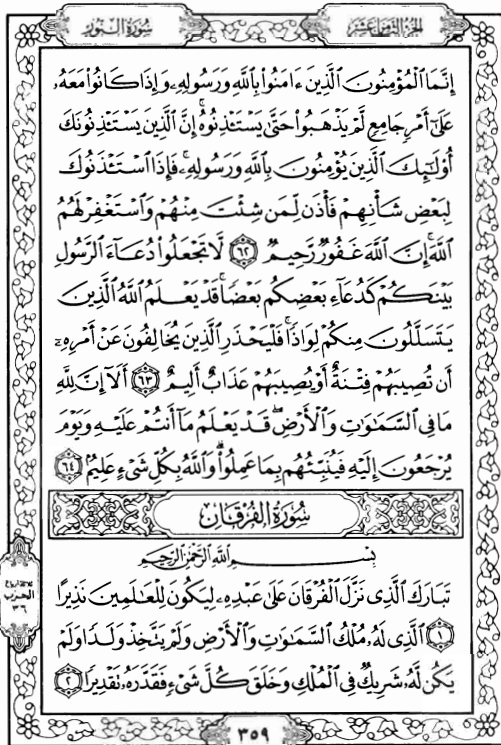 سُورَةُ النُّورِ
الجُزْءُ الثَّامِنَ عَشَرَ
إِنَّمَا ٱلْمُؤْمِنُونَ ٱلَّذِينَ ءَامَنُوا۟ بِٱللَّهِ وَرَسُولِهِۦ وَإِذَا كَانُوا۟ مَعَهُۥ
عَلَىٰٓ أَمْرٍ جَامِعٍ لَّمْ يَذْهَبُوا۟ حَتَّىٰ يَسْتَـْٔذِنُوهُ ۚ إِنَّ ٱلَّذِينَ يَسْتَـْٔذِنُونَكَ
أُو۟لَٰٓئِكَ ٱلَّذِينَ يُؤْمِنُونَ بِٱللَّهِ وَرَسُولِهِۦ ۚ فَإِذَا ٱسْتَـْٔذَنُوكَ
لِبَعْضِ شَأْنِهِمْ فَأْذَن لِّمَن شِئْتَ مِنْهُمْ وَٱسْتَغْفِرْ لَهُمُ
ٱللَّهَ ۚ إِنَّ ٱللَّهَ غَفُورٌ رَّحِيمٌ ٦٢ لَّا تَجْعَلُوا۟ دُعَآءَ ٱلرَّسُولِ
بَيْنَكُمْ كَدُعَآءِ بَعْضِكُم بَعْضًا ۚ قَدْ يَعْلَمُ ٱللَّهُ ٱلَّذِينَ
يَتَسَلَّلُونَ مِنكُمْ لِوَاذًا ۚ فَلْيَحْذَرِ ٱلَّذِينَ يُخَالِفُونَ عَنْ أَمْرِهِۦٓ
أَن تُصِيبَهُمْ فِتْنَةٌ أَوْ يُصِيبَهُمْ عَذَابٌ أَلِيمٌ ٦٣ أَلَآ إِنَّ لِلَّهِ
مَا فِى ٱلسَّمَٰوَٰتِ وَٱلْأَرْضِ ۖ قَدْ يَعْلَمُ مَآ أَنتُمْ عَلَيْهِ وَيَوْمَ
يُرْجَعُونَ إِلَيْهِ فَيُنَبِّئُهُم بِمَا عَمِلُوا۟ ۗ وَٱللَّهُ بِكُلِّ شَىْءٍ عَلِيمٌۢ ٦٤
سُورَةُ الفُرْقَانِ
بِسْمِ ٱللَّهِ ٱلرَّحْمَٰنِ ٱلرَّحِيمِ
تَبَارَكَ ٱلَّذِى نَزَّلَ ٱلْفُرْقَانَ عَلَىٰ عَبْدِهِۦ لِيَكُونَ لِلْعَٰلَمِينَ نَذِيرًا
١ ٱلَّذِى لَهُۥ مُلْكُ ٱلسَّمَٰوَٰتِ وَٱلْأَرْضِ وَلَمْ يَتَّخِذْ وَلَدًا وَلَمْ
يَكُن لَّهُۥ شَرِيكٌ فِى ٱلْمُلْكِ وَخَلَقَ كُلَّ شَىْءٍ فَقَدَّرَهُۥ تَقْدِيرًا ٢
ثلاثة أرباع
الحزب
٣٦
٣٥٩